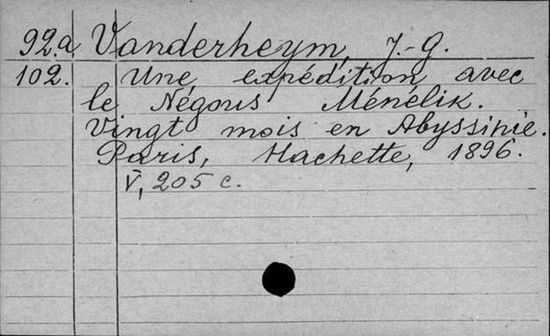 92.a Vanderheym, J.-G.
102. Une expédition avec
le Négous Ménélik.
Vingt mois en Abyssinie.
Paris, Hachette, 1896.
V, 205 c.